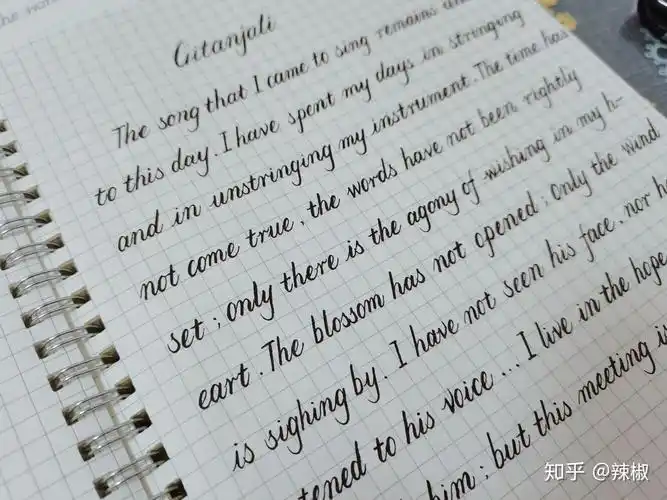 Gitanjali
The song that I came to sing remains
to this day. I have spent my days in stringing
and in unstringing my instrument. The time has
not come true, the words have not been rightly
set; only there is the agony of wishing in my h-
eart. The blossom has not opened; only the wind
is sighing by. I have not seen his face, nor
to his voice... I live in the hope
him; but this meeting
知乎 @辣椒